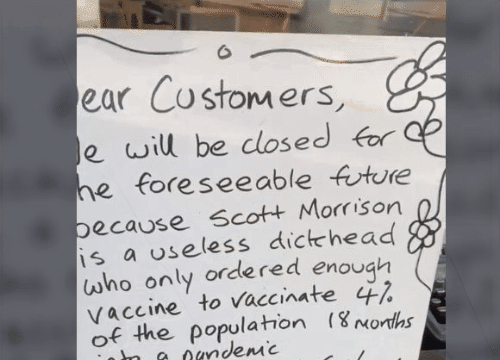 ear Customers,
e will be closed for
he foreseeable future
because Scott Morrison
is a useless dickhead
who only ordered enough
vaccine to vaccinate 4%
of the population 18 months
into a pandemic